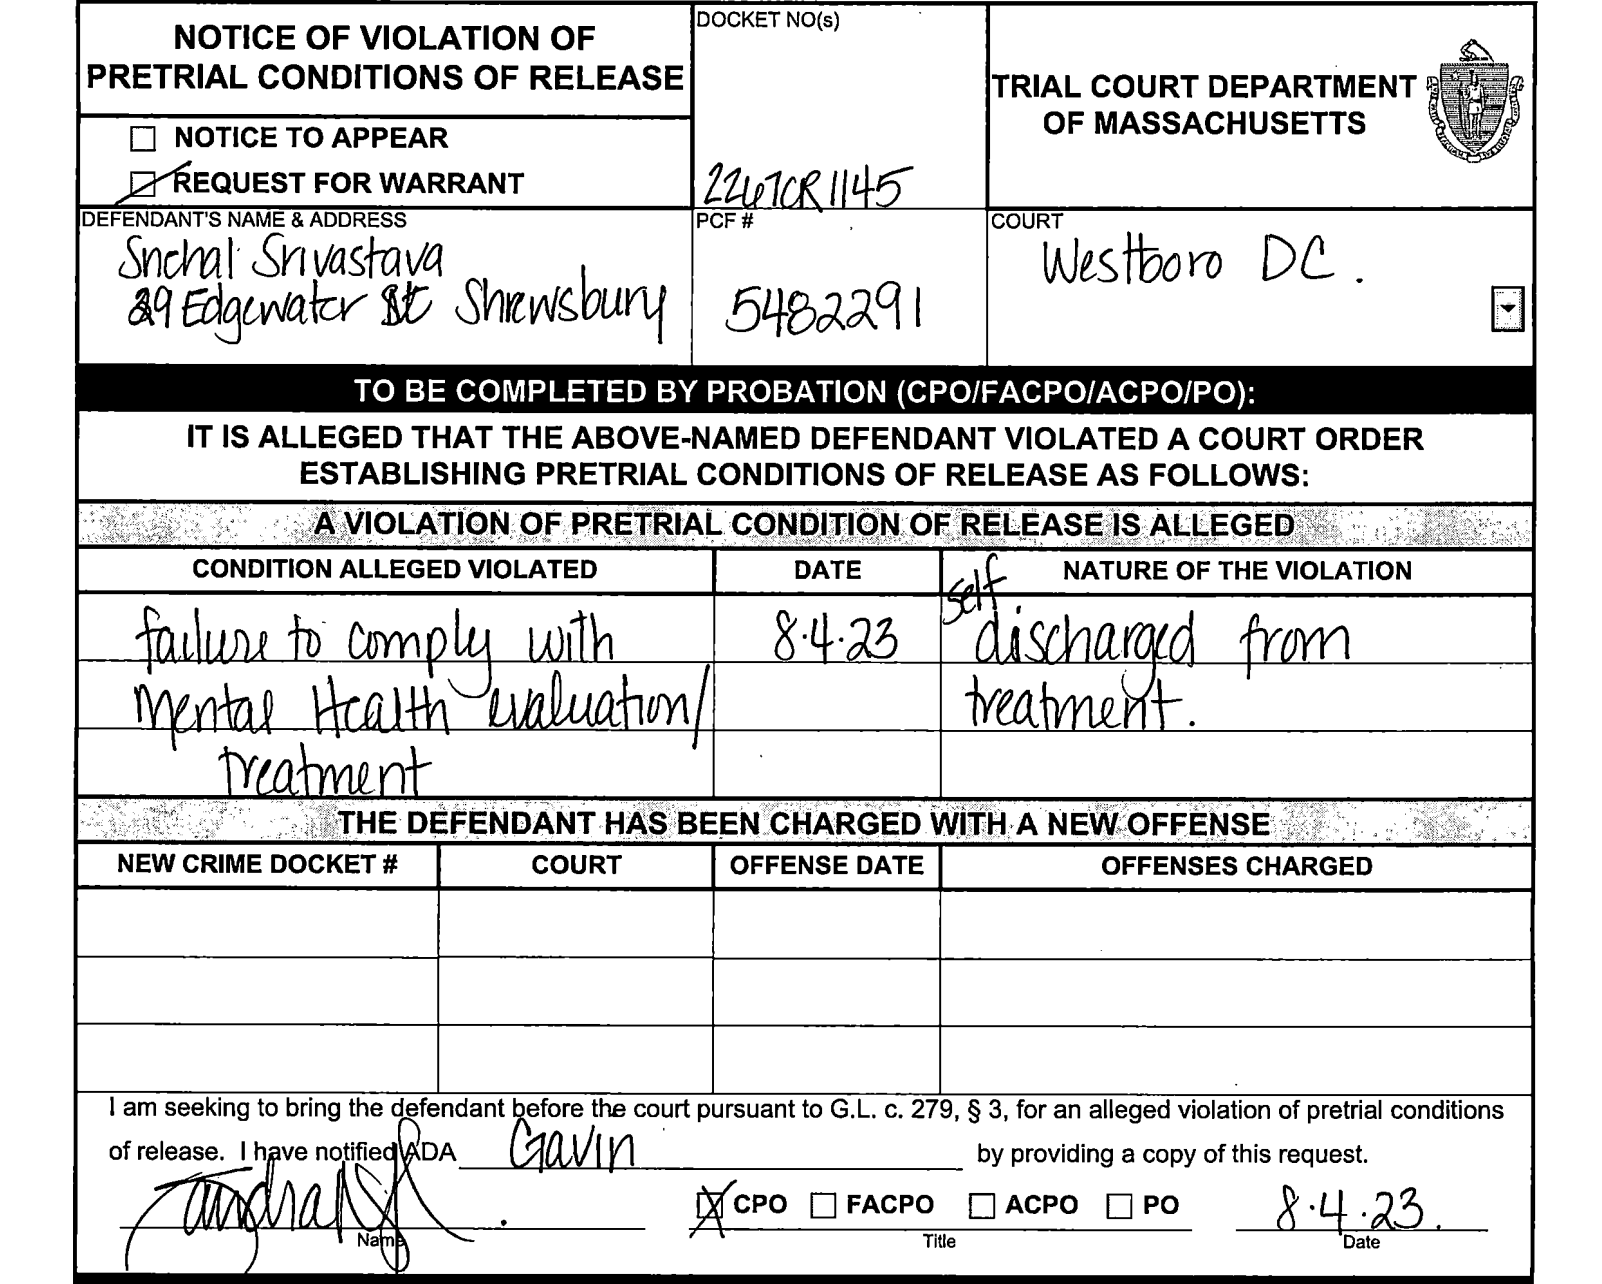 NOTICE OF VIOLATION OF
PRETRIAL CONDITIONS OF RELEASE
NOTICE TO APPEAR
REQUEST FOR WARRANT
DOCKET NO(s)
2267CR1145
TRIAL COURT DEPARTMENT
OF MASSACHUSETTS
DEFENDANT'S NAME & ADDRESS
Snehal Srivastava
29 Edgewater St Shrewsbury
PCF #
5482291
COURT
Westboro DC.
TO BE COMPLETED BY PROBATION (CPO/FACPO/ACPO/PO):
IT IS ALLEGED THAT THE ABOVE-NAMED DEFENDANT VIOLATED A COURT ORDER
ESTABLISHING PRETRIAL CONDITIONS OF RELEASE AS FOLLOWS:
A VIOLATION OF PRETRIAL CONDITION OF RELEASE IS ALLEGED
CONDITION ALLEGED VIOLATED DATE NATURE OF THE VIOLATION
failure to comply with 8.4.23 self discharged from
Mental Health evaluation/ treatment.
treatment
THE DEFENDANT HAS BEEN CHARGED WITH A NEW OFFENSE
NEW CRIME DOCKET # COURT OFFENSE DATE OFFENSES CHARGED
I am seeking to bring the defendant before the court pursuant to G.L. c. 279, § 3, for an alleged violation of pretrial conditions
of release. I have notified ADA Gavin by providing a copy of this request.
CPO FACPO ACPO PO 8.4.23.
Name Title Date